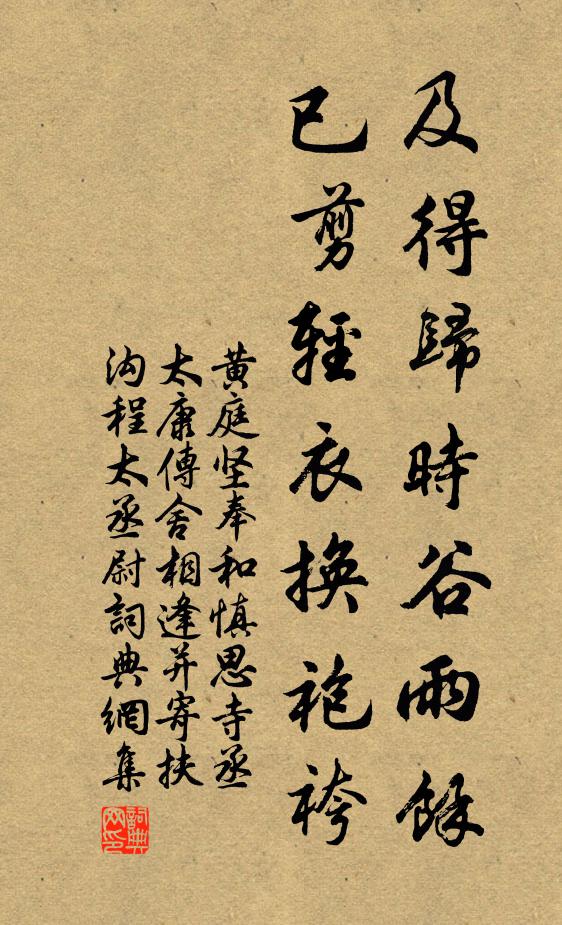 及得歸時谷雨餘
已剪輕衣換袍袴
黄庭坚奉和慎思寺丞
太康傳舍相逢并寄扶
沟程太丞尉詞典網集
詞典
网印